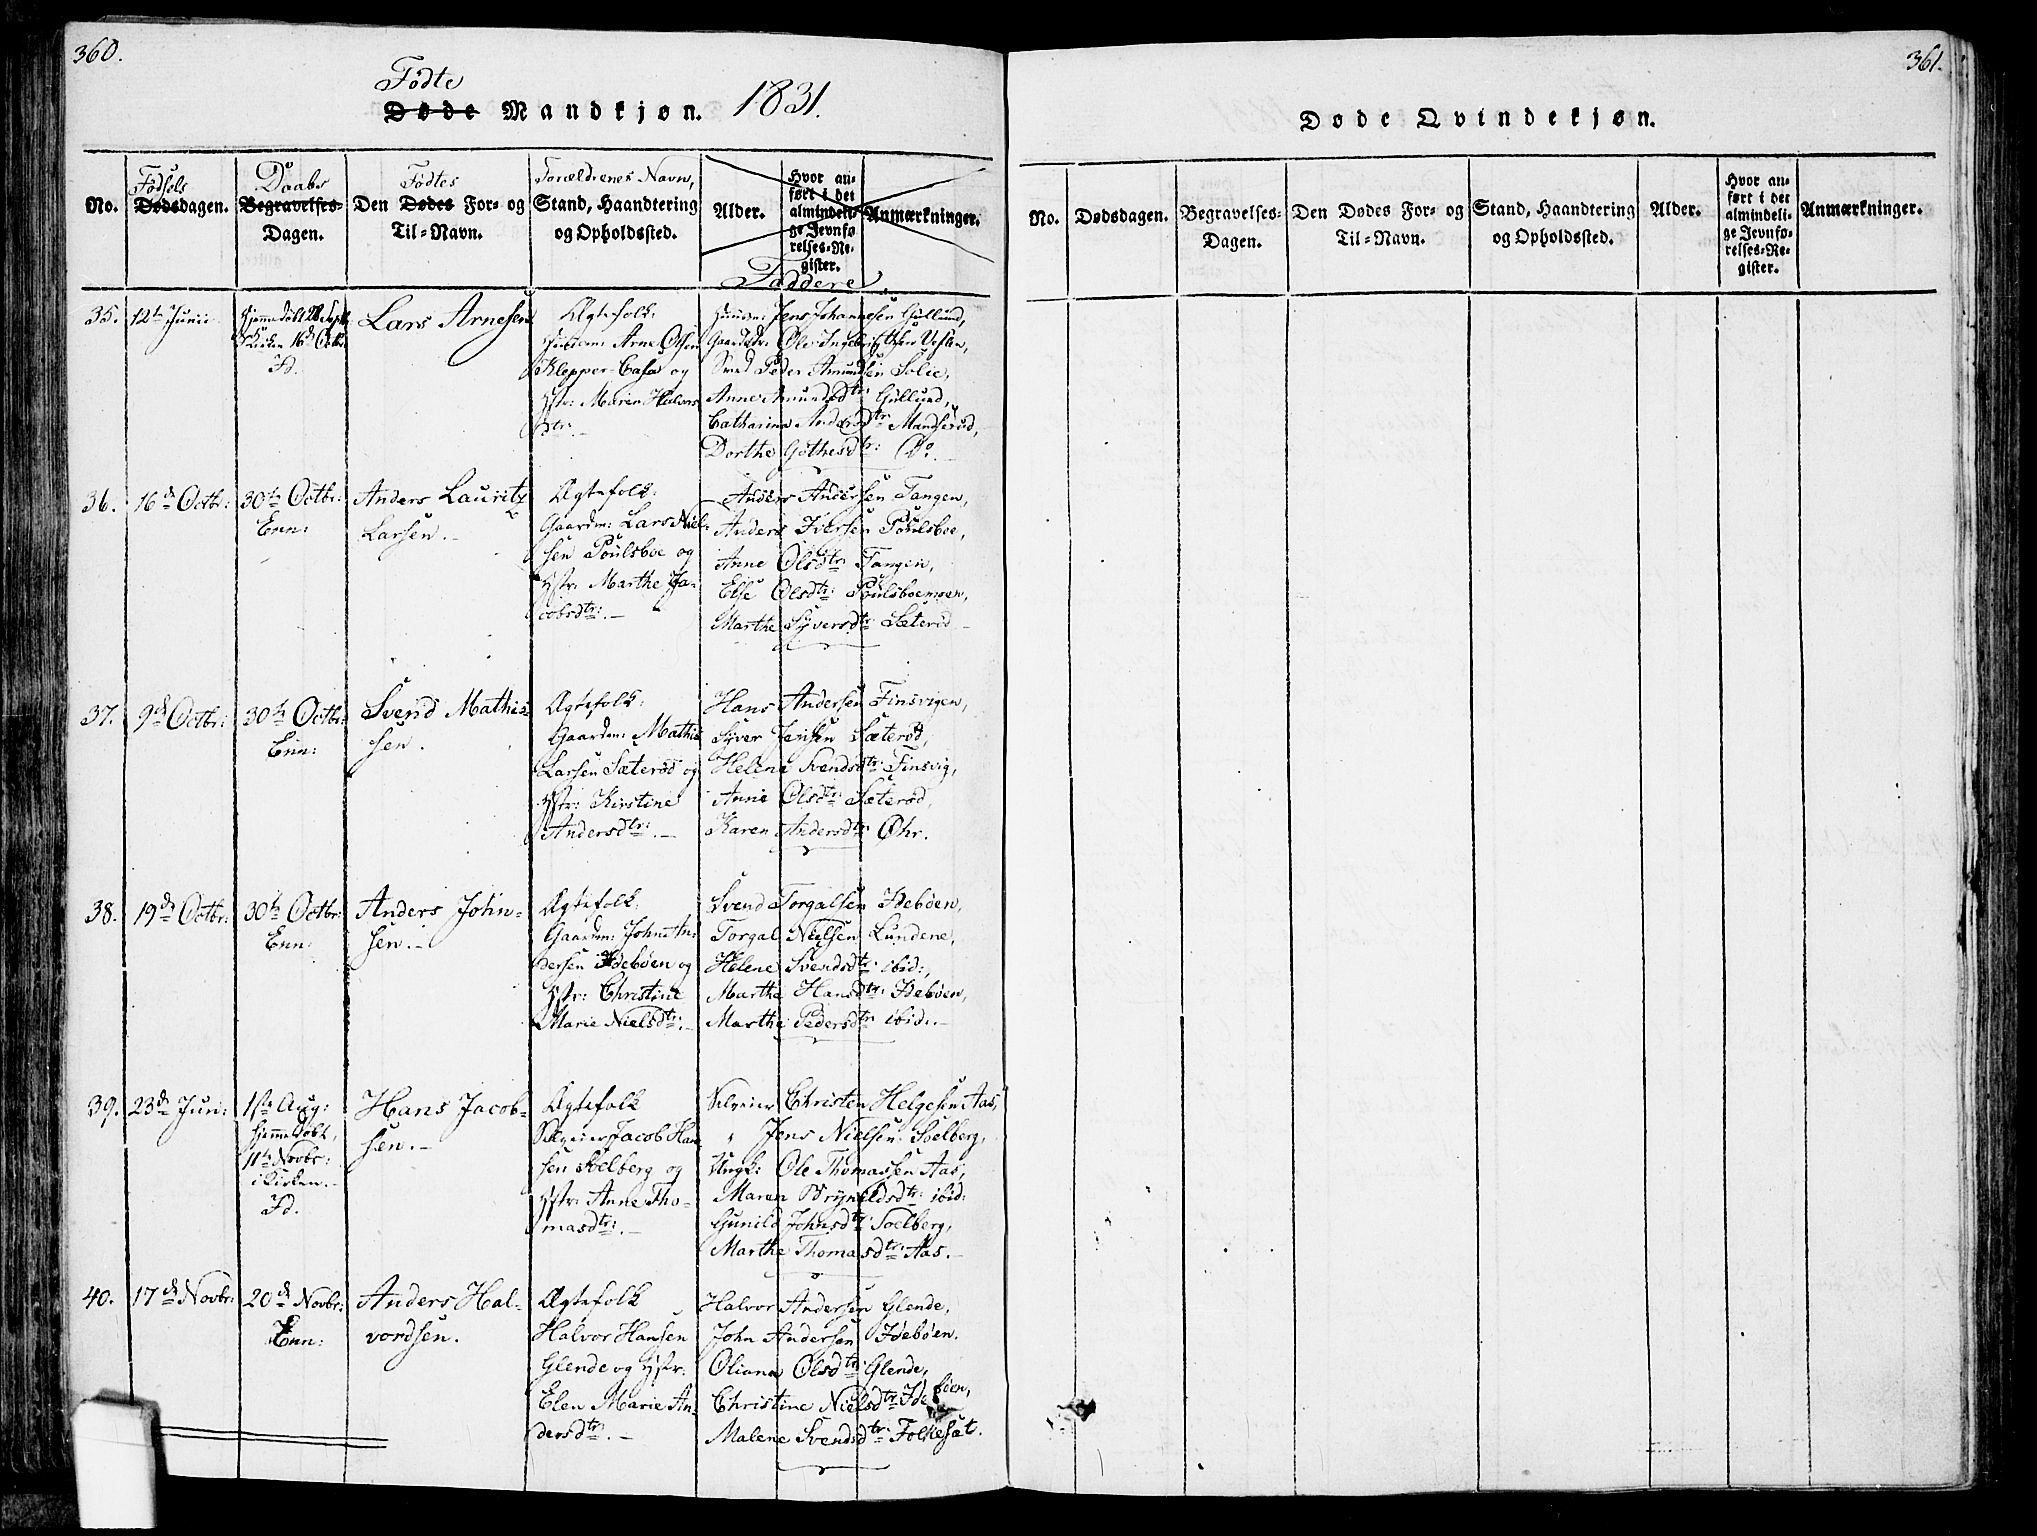 360.
Fødte
Døde Mandkjøn. 1831.
No.
Fødsels
Dødsdagen.
Daabs
Begravelses-
Dagen.
Fødtes
Den Dødes For- og
Til-Navn.
Forældrenes Navn,
Stand, Haandtering
og Opholdssted.
Alder.
Hvor an-
ført i det
almindeli-
ge Jevnfø-
relses-Re-
gister.
Anmærkninger.
Faddere.
35.
12te Junii
Hjemmedøbt
Kirken 16de Octbr.
Fd.
Lars Arnesen
Ægtefolk:
Arne Olsen
Klepper-Casa og
Hstr: Maren Halvors
dtr:
Jens Johannesen Gullund,
Ole Vestln,
Peder Amundsen Solie,
Anne Amundsdtr: Gullund,
Catharina Andersdtr: Mandserud,
Dorthe Gothesdtr: Do.
36.
16de Octbr:
30te Octbr:
Enn:
Anders Lauritz
Larsen.
Ægtefolk:
Gaardm: Lars Niel-
sen Poulsboe og
Hstr: Marthe Ja-
cobsdtr:
Anders Andersen Tangen,
Anders Iversen Poulsboe,
Anne Olsdtr: Tangen,
Else Olsdtr: Poulsboemoen,
Marthe Syversdtr: Sæterød
37.
9de Octbr:
30te Octbr:
Enn:
Svend Mathis-
sen.
Ægtefolk:
Gaardm: Mathis
Larsen Sæterød og
Hstr: Kirstine
Andersdtr:
Hans Andersen Finsvigen,
Syver Jensen Sæterød,
Helene Svendsdtr: Finsvig,
Anne Olsdtr: Sæterød,
Karen Andersdtr: Øhr.
38.
19de Octbr:
30te Octbr:
Enn:
Anders John-
sen.
Ægtefolk:
Gaardm: John An-
dersen Idebøen og
Hstr: Christine
Marie Nielsdtr:
Svend Torgalsen Idebøen,
Torgal Nielsen Lundene,
Helene Svendsdtr: ibid:,
Marthe Hansdtr: Idebøen,
Marthe Pedersdtr: ibid:
39.
23de Jun:
1ste Aug:
Hjemmedøbt,
11te Novbr:
i Kirken.
Fd.
Hans Jacob-
sen.
Ægtefolk
Selveier Jacob Han
sen Soelberg og
Hstr: Anne Tho-
masdtr:
Selveier Christen Helgesen Aas,
" Jens Nielsen Soelberg,
Ungk: Ole Thomassen Aas,
Maren Brynildsdtr: ibid:
Gunild Johnsdtr: Soelberg,
Marthe Thomasdtr: Aas.
40.
17de Novbr:
20de Novbr:
Enn:
Anders Hal-
vordsen.
Ægtefolk
Halvor Hansen
Glende og Hstr:
Elen Marie An-
dersdtr:
Halvor Andersen Glende,
John Andersen Idebøen.
Oliana Olsdtr: Glende,
Christine Nielsdtr: Idebøen,
Malene Svendsdtr: Folkesæt.
361.
Døde Qvindekjøn.
No.
Dødsdagen.
Begravelses-
Dagen.
Den Dødes For- og
Til-Navn.
Stand, Haandtering
og Opholdssted.
Alder.
Hvor an-
ført i det
almindeli-
ge Jevnfø-
relses-Re-
gister.
Anmærkninger.